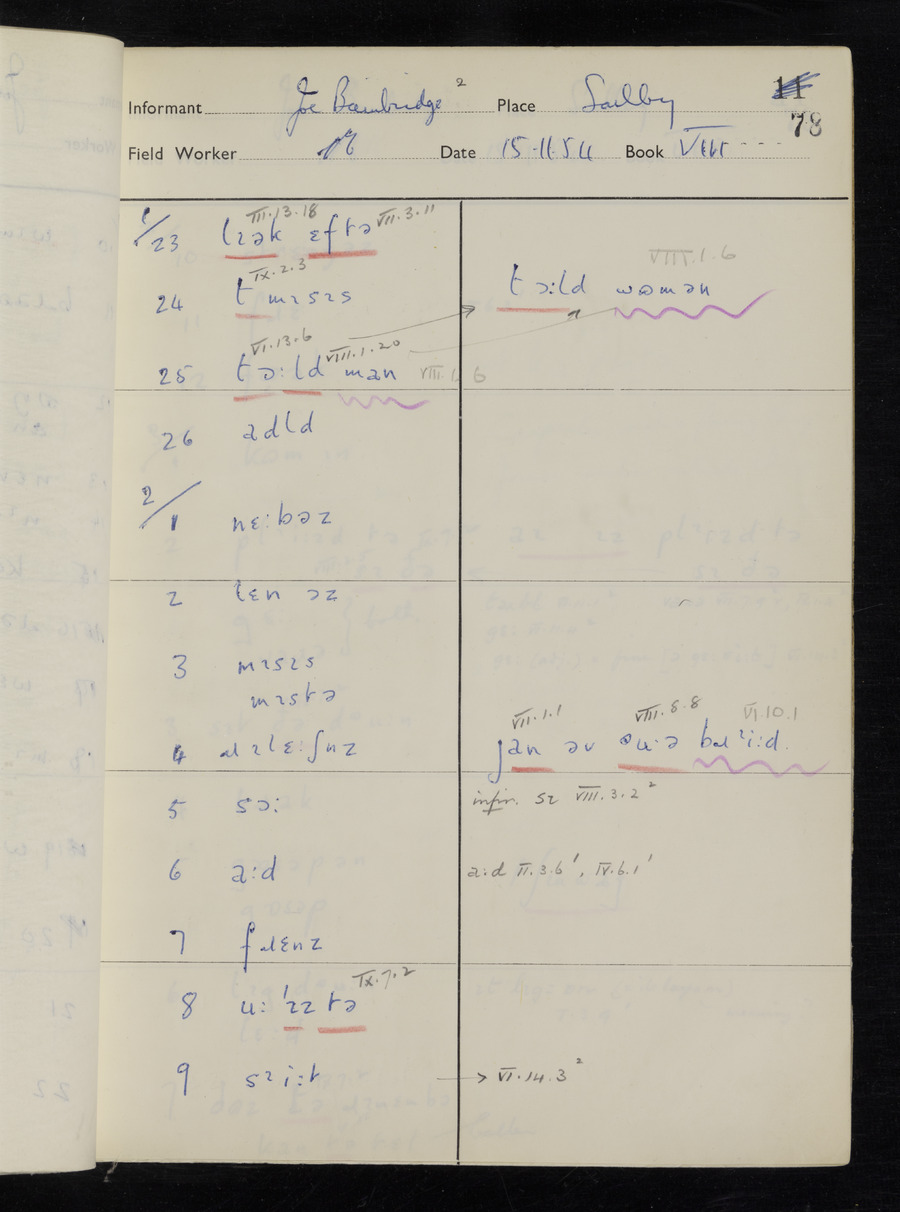 Informant Joe Bainbridge ² Place Saelby 11
78
Field Worker Date 15.11.54 Book VIII
1/23 lɪək ɛftə III.13.18 VII.3.11
24 t mɪsɪs IX.2.3
tɔ:ld wʊmən VIII.1.6
25 tɔ:ld man VI.13.6 VIII.1.20 VIII.1.6
26 adld
2/1 nɛ:bəz
2 lɛn əz
3 mɪsɪs
mɪstə
4 ɹɪlɛ:ʃnz
jan əv ʊu:ə bɹɪi:d. VII.1.1 VIII.8.8 VI.10.1
5 sɔ:
infin. sɪ VIII.3.2²
6 a:d
a:d II.3.6', IV.6.1'
7 fɹɛnz
8 u: 'ɪz tə IX.7.2
9 sɪi:t
→ VI.14.3²